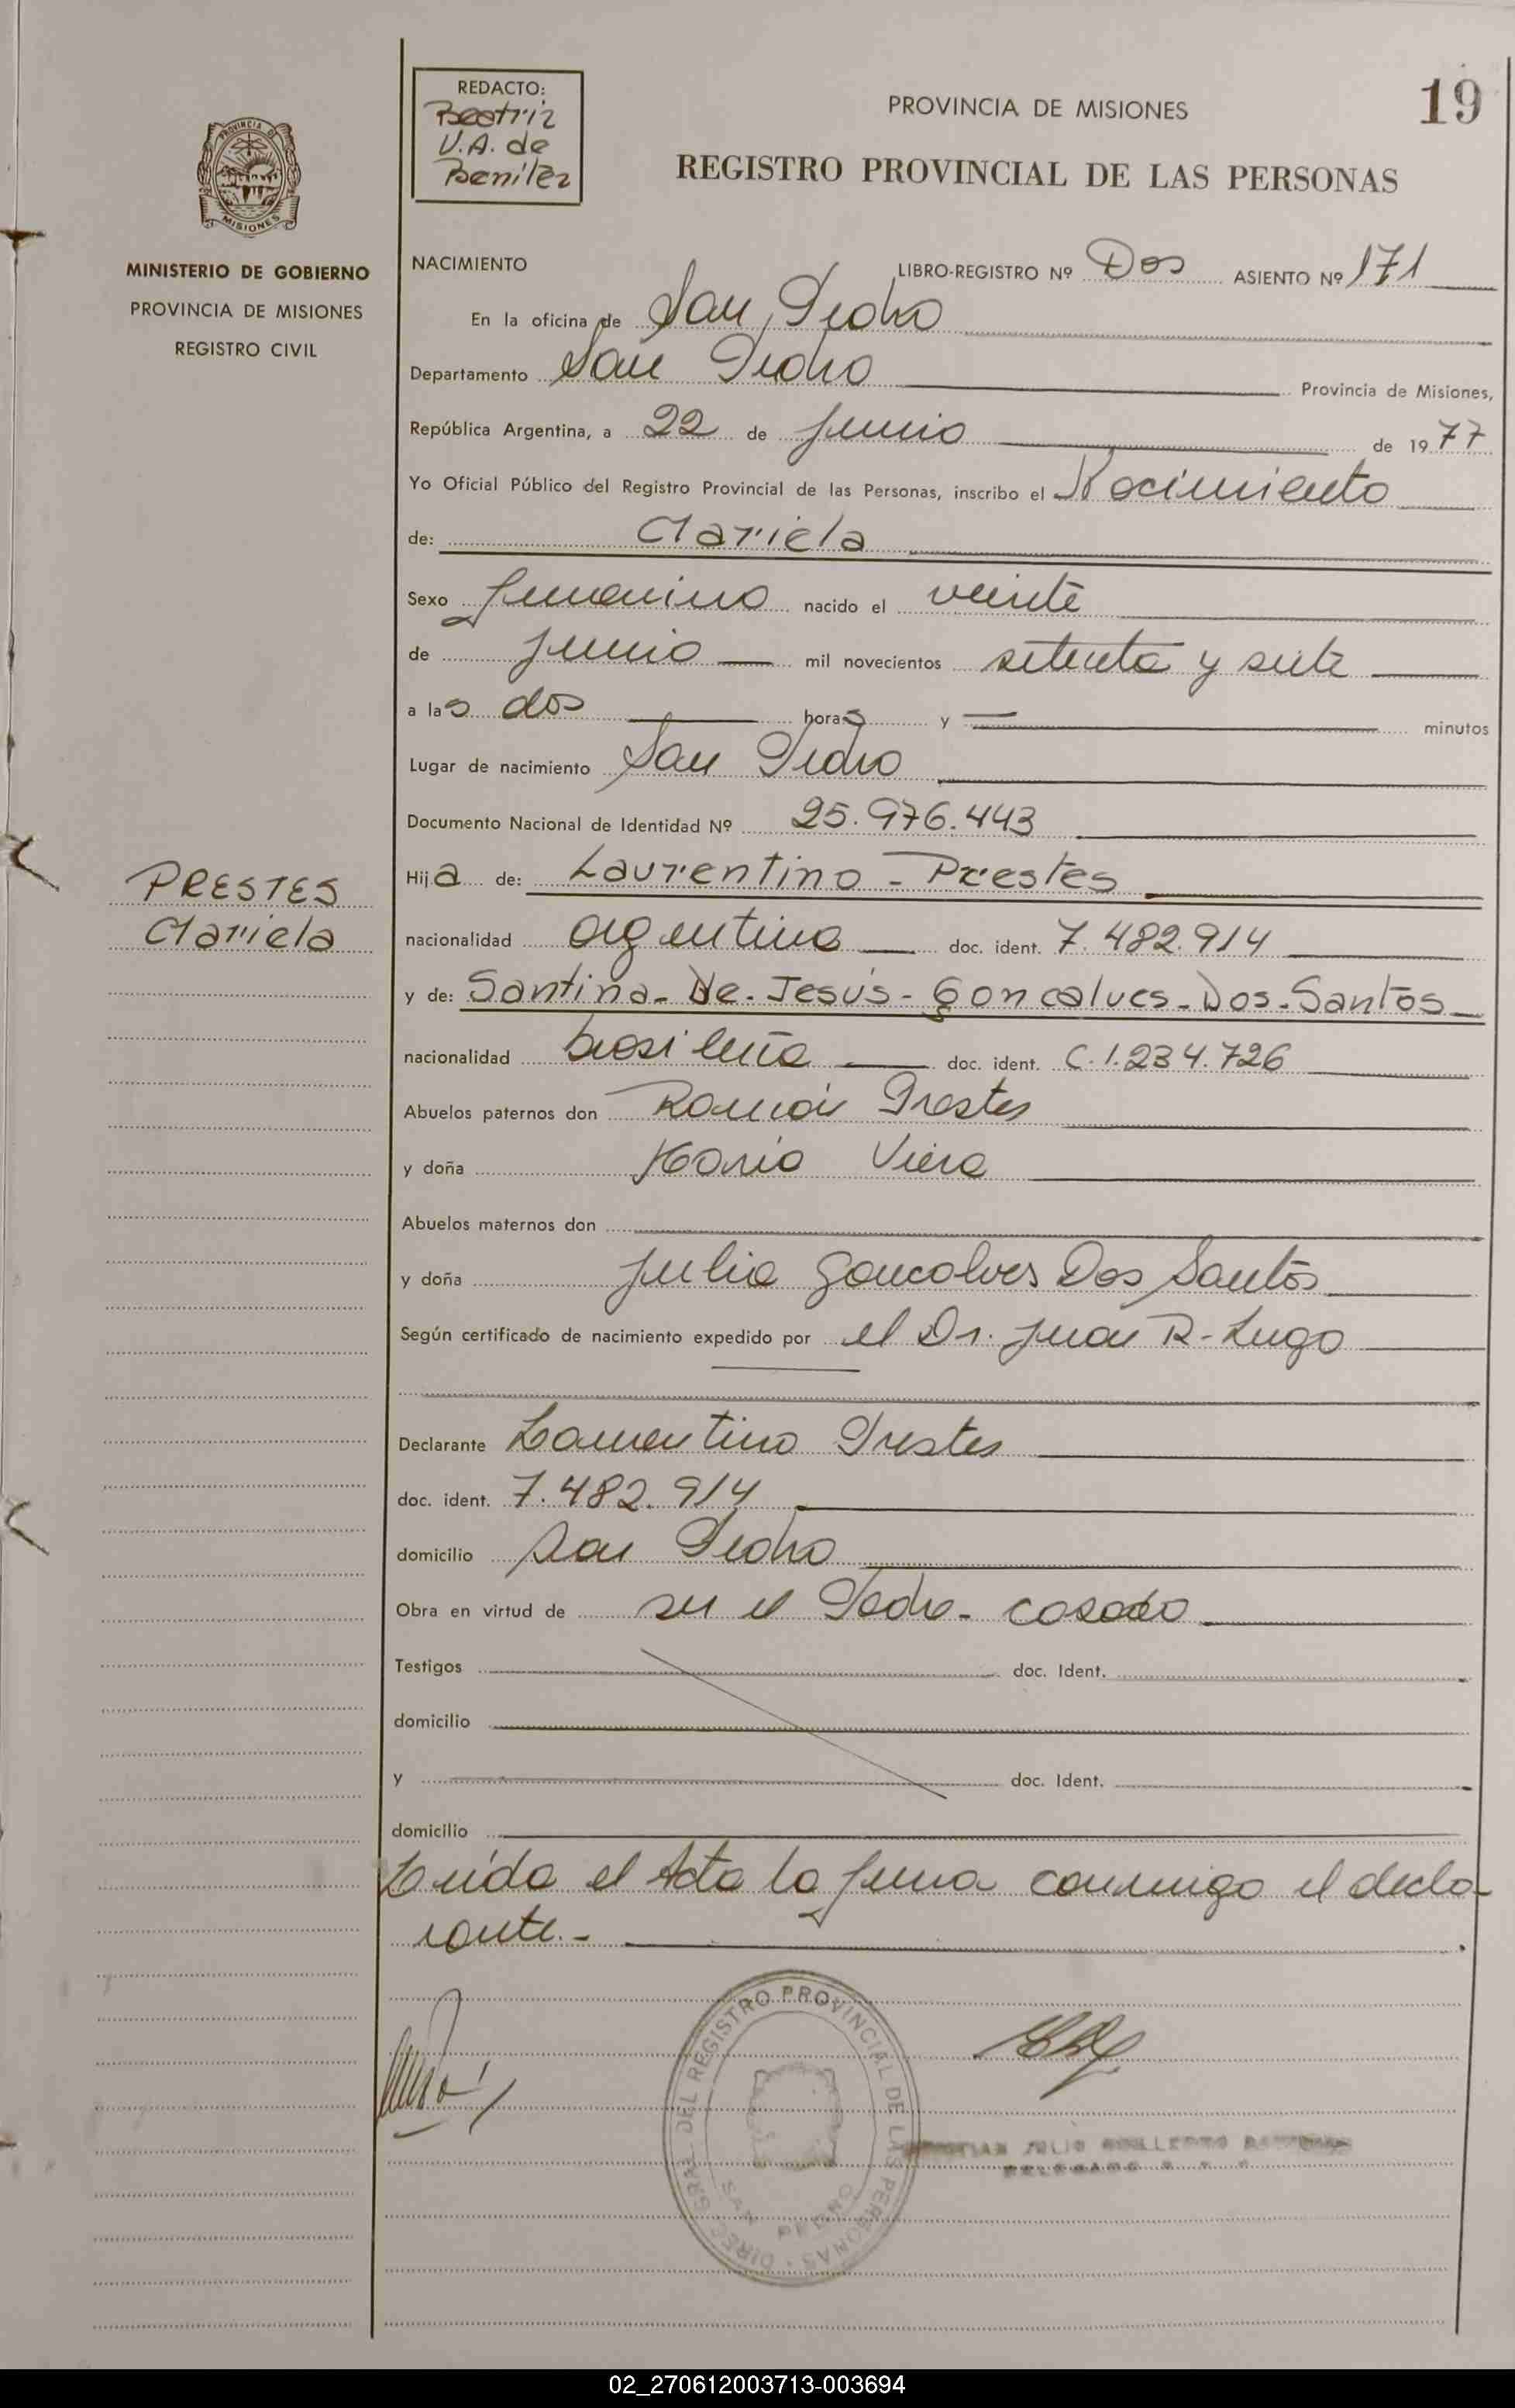 REDACTO:
Beatriz
V.A. de
Benitez
PROVINCIA DE MISIONES
19
REGISTRO PROVINCIAL DE LAS PERSONAS
PROVINCIA DE
MISIONES
MINISTERIO DE GOBIERNO
PROVINCIA DE MISIONES
REGISTRO CIVIL
NACIMIENTO
LIBRO-REGISTRO Nº Dos ASIENTO Nº 171
En la oficina de San Pedro
Departamento San Pedro Provincia de Misiones,
República Argentina, a 22 de junio de 1977
Yo Oficial Público del Registro Provincial de las Personas, inscribo el Nacimiento
de: Mariela
Sexo femenino nacido el veinte
de junio mil novecientos setenta y siete
a las dos horas y — minutos
Lugar de nacimiento San Pedro
Documento Nacional de Identidad Nº 25.976.443
PRESTES
Mariela
Hija de: Laurentino - Prestes
nacionalidad argentina doc. ident. 7.482.914
y de: Santina - De - Jesús - Goncalves - Dos - Santos
nacionalidad brasileña doc. ident. C.1.234.726
Abuelos paternos don Ramón Prestes
y doña María Viera
Abuelos maternos don
y doña Julia Goncalves Dos Santos
Según certificado de nacimiento expedido por el Dr. Juan R. Lugo
Declarante Laurentino Prestes
doc. ident. 7.482.914
domicilio San Pedro
Obra en virtud de ser el Padre - casado
Testigos doc. Ident.
domicilio
y doc. Ident.
domicilio
Leída el Acta la firma conmigo el decla-
rante.-
DIREC. GRAL. DEL REGISTRO PROVINCIAL DE LAS PERSONAS
SAN PEDRO
JULIO
02_270612003713-003694